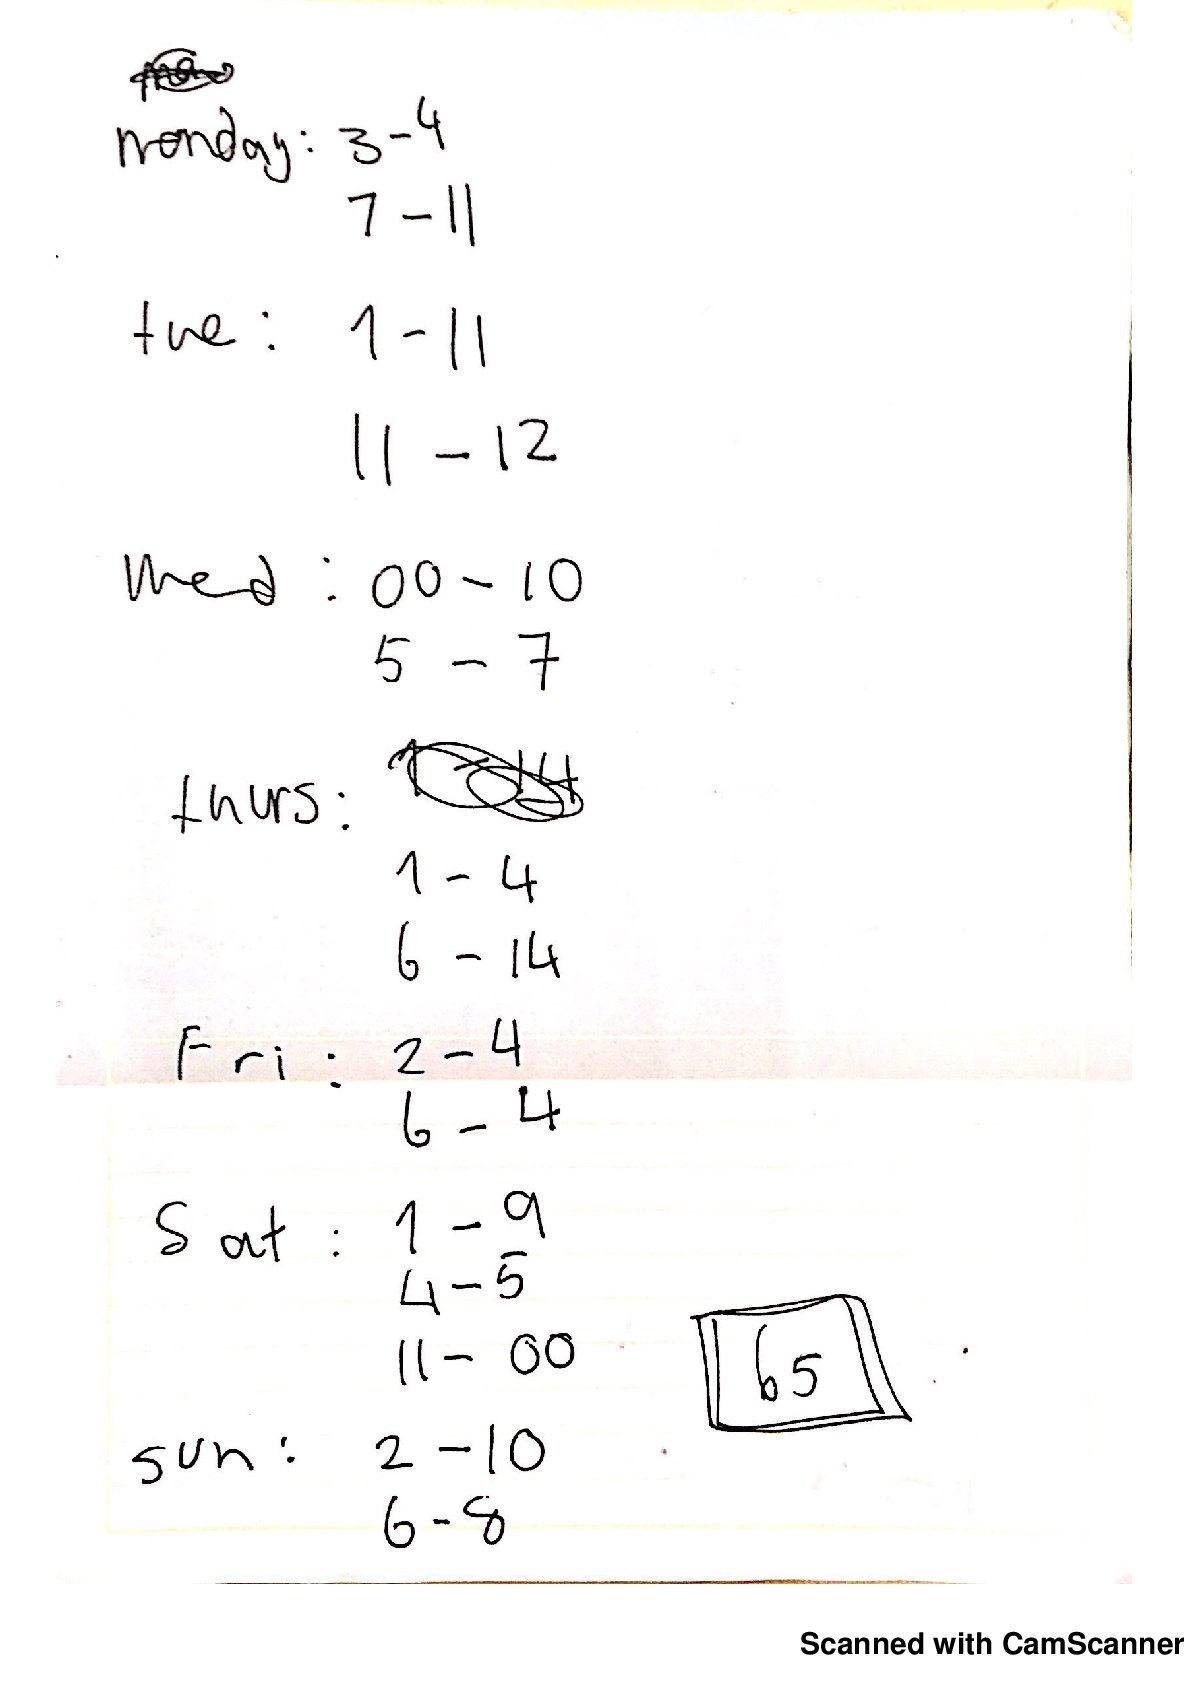 monday: 3-4
7-11
tue: 1-11
11-12
Wed: 00-10
5-7
thurs:
1-4
6-14
Fri: 2-4
6-4
Sat: 1-9
4-5
11-00
65
sun: 2-10
6-8
Scanned with CamScanner